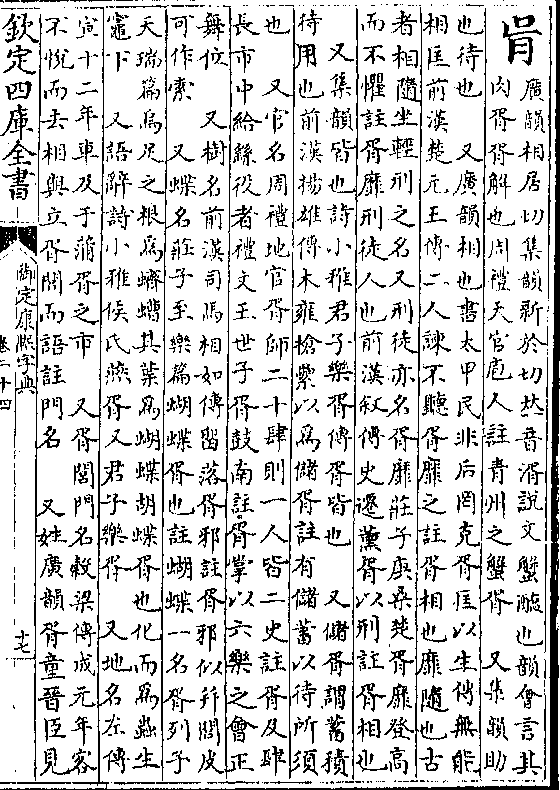 胥
廣韻相居切集韻新於切𠀤音湑說文蟹醢也韻會言其
肉胥胥解也周禮天官庖人註青州之蟹胥　又集韻助
也待也　又廣韻相也書太甲民非后罔克胥匡以生傳無能
相匡前漢楚元王傳二人諫不聽胥靡之註胥相也靡隨也古
者相隨坐輕刑之名又刑徒亦名胥靡莊子庚桑楚胥靡登高
而不懼註胥靡刑徒人也前漢敘傳史遷薰胥以刑註胥相也
又集韻皆也詩小雅君子樂胥傳胥皆也　又儲胥謂蓄積
待用也前漢揚雄傳木雍槍纍以爲儲胥註有儲蓄以待所須
也　又官名周禮地官胥師二十肆則一人皆二史註胥及肆
長市中給繇役者禮文王世子胥鼓南註胥掌以六樂之會正
舞位　又樹名前漢司馬相如傳留落胥邪註胥邪似幷閭皮
可作索　又蝶名莊子至樂篇蝴蝶胥也註蝴蝶一名胥列子
天瑞篇烏足之根爲蠐螬其葉爲蝴蝶胡蝶胥也化而爲蟲生
竈下　又語辭詩小雅侯氏燕胥又君子樂胥　又地名左傳
宣十二年車及于蒲胥之市　又胥閭門名穀梁傳成元年客
不悅而去相與立胥閭而語註門名　又姓廣韻胥童晉臣見
欽定四庫全書
御定康熙字典
卷二十四
十七